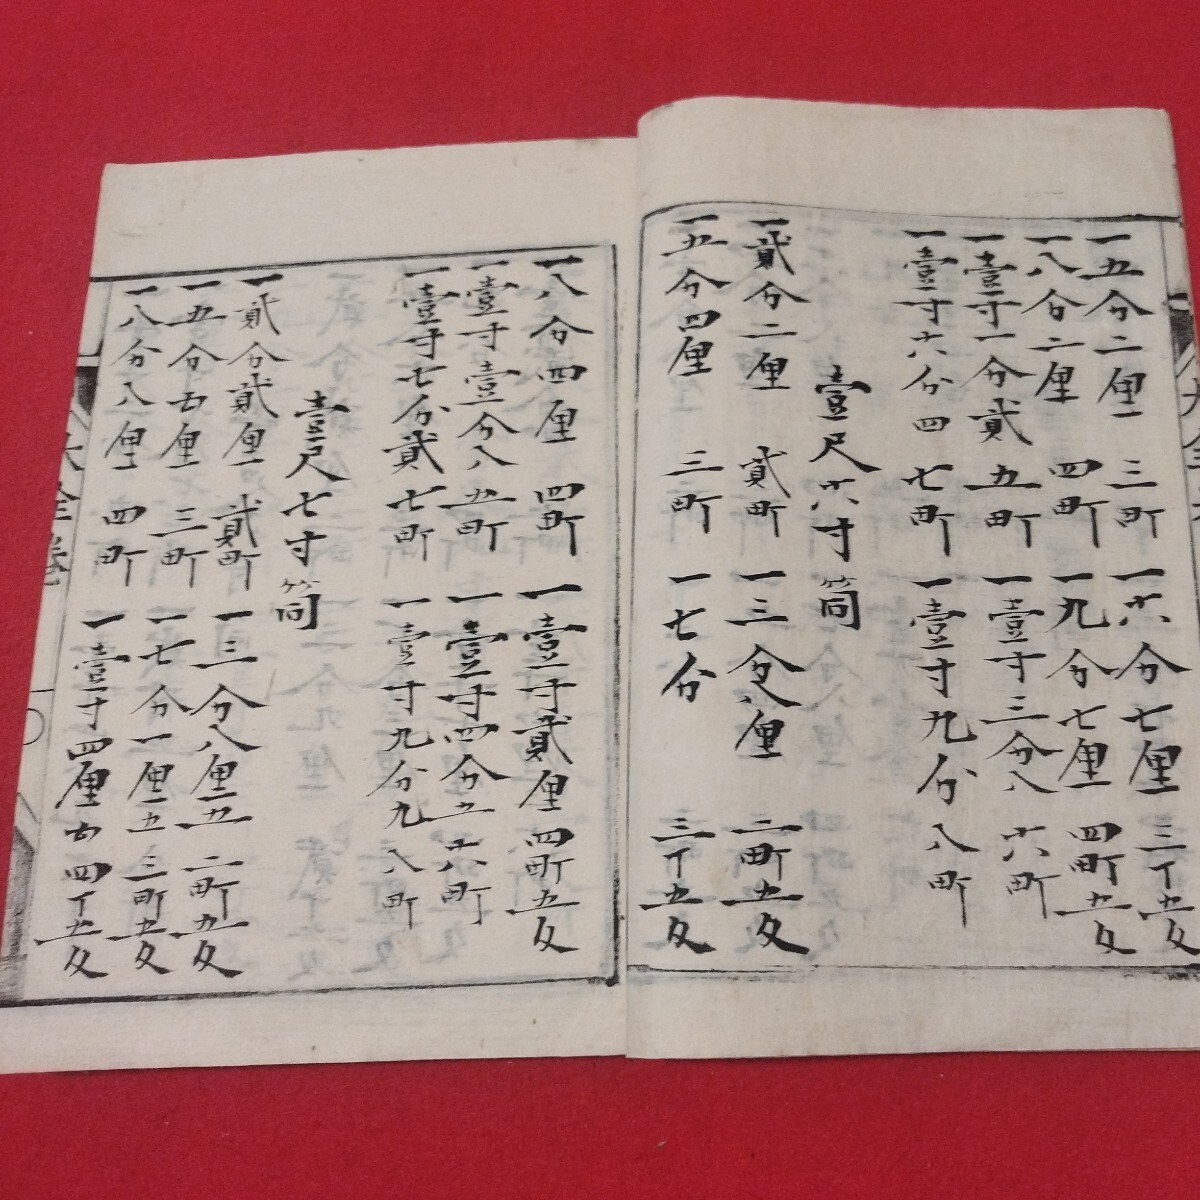 一五分二厘 三町 一六分七厘 三丁五反
一八分二厘 四町 一九分七厘 四町五反
一壹寸一分貳 五町 一壹寸三分八 六町
一壹寸六分四 七町 一壹寸九分 八町
壹尺六寸筒
一貳分二厘 貳町 一三分八厘 二町五反
一五分四厘 三町 一七分 三丁五反
一八分四厘 四町 一壹寸貳厘 四町五反
一壹寸壹分八 五町 一壹寸四分五 六町
一壹寸七分貳 七町 一壹寸九分九 八町
壹尺七寸筒
一貳分貳厘 貳町 一三分八厘五 二町五反
一五分五厘 三町 一七分一厘五 三町五反
一八分八厘 四町 一壹寸四厘五 四丁五反